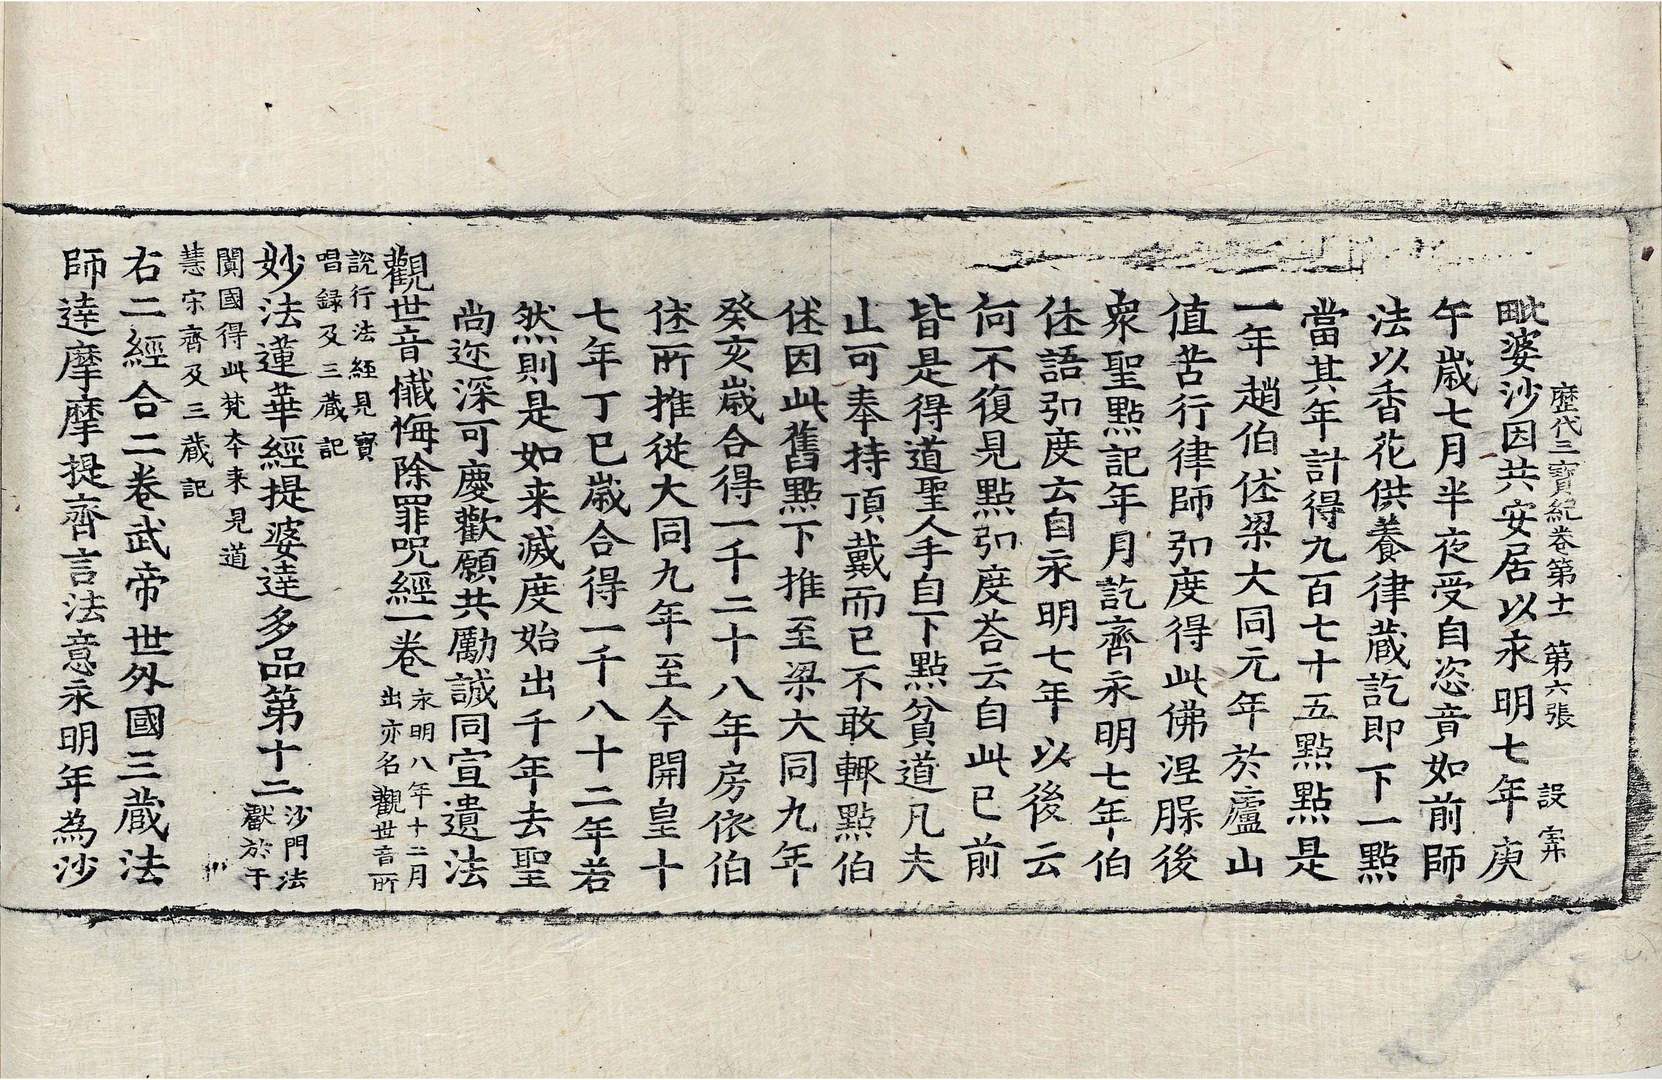 歷代三寶紀卷第十一 第六張 設 寀
毗婆沙因共安居以永明七年庚
午歲七月半夜受自恣竟如前師
法以香花供養律蔵訖即下一點
當其年計得九百七十五點點是
一年趙伯休梁大同元年於廬山
值苦行律師弘度得此佛涅脲後
衆聖點記年月訖齊永明七年伯
休語弘度云自永明七年以後云
何不復見點弘度荅云自此已前
皆是得道聖人手自下點貧道凡夫
止可奉持頂戴而已不敢輙點伯
休因此舊點下推至梁大同九年
癸亥歲合得一千二十八年房依伯
休所推從大同九年至今開皇十
七年丁巳歲合得一千八十二年若
然則是如来滅度始出千年去聖
尚迩深可慶歡願共勵誠同宣遺法
觀世音懺悔除罪呪經一卷 永明八年十二月
出亦名觀世音所
説行法經見寶
唱録及三蔵記
妙法蓮華經提婆達多品第十二 沙門法
獻於于
闐國得此梵本来見道
慧宋齊及三蔵記
右二經合二卷武帝世外國三蔵法
師達摩摩提齊言法意永明年為沙